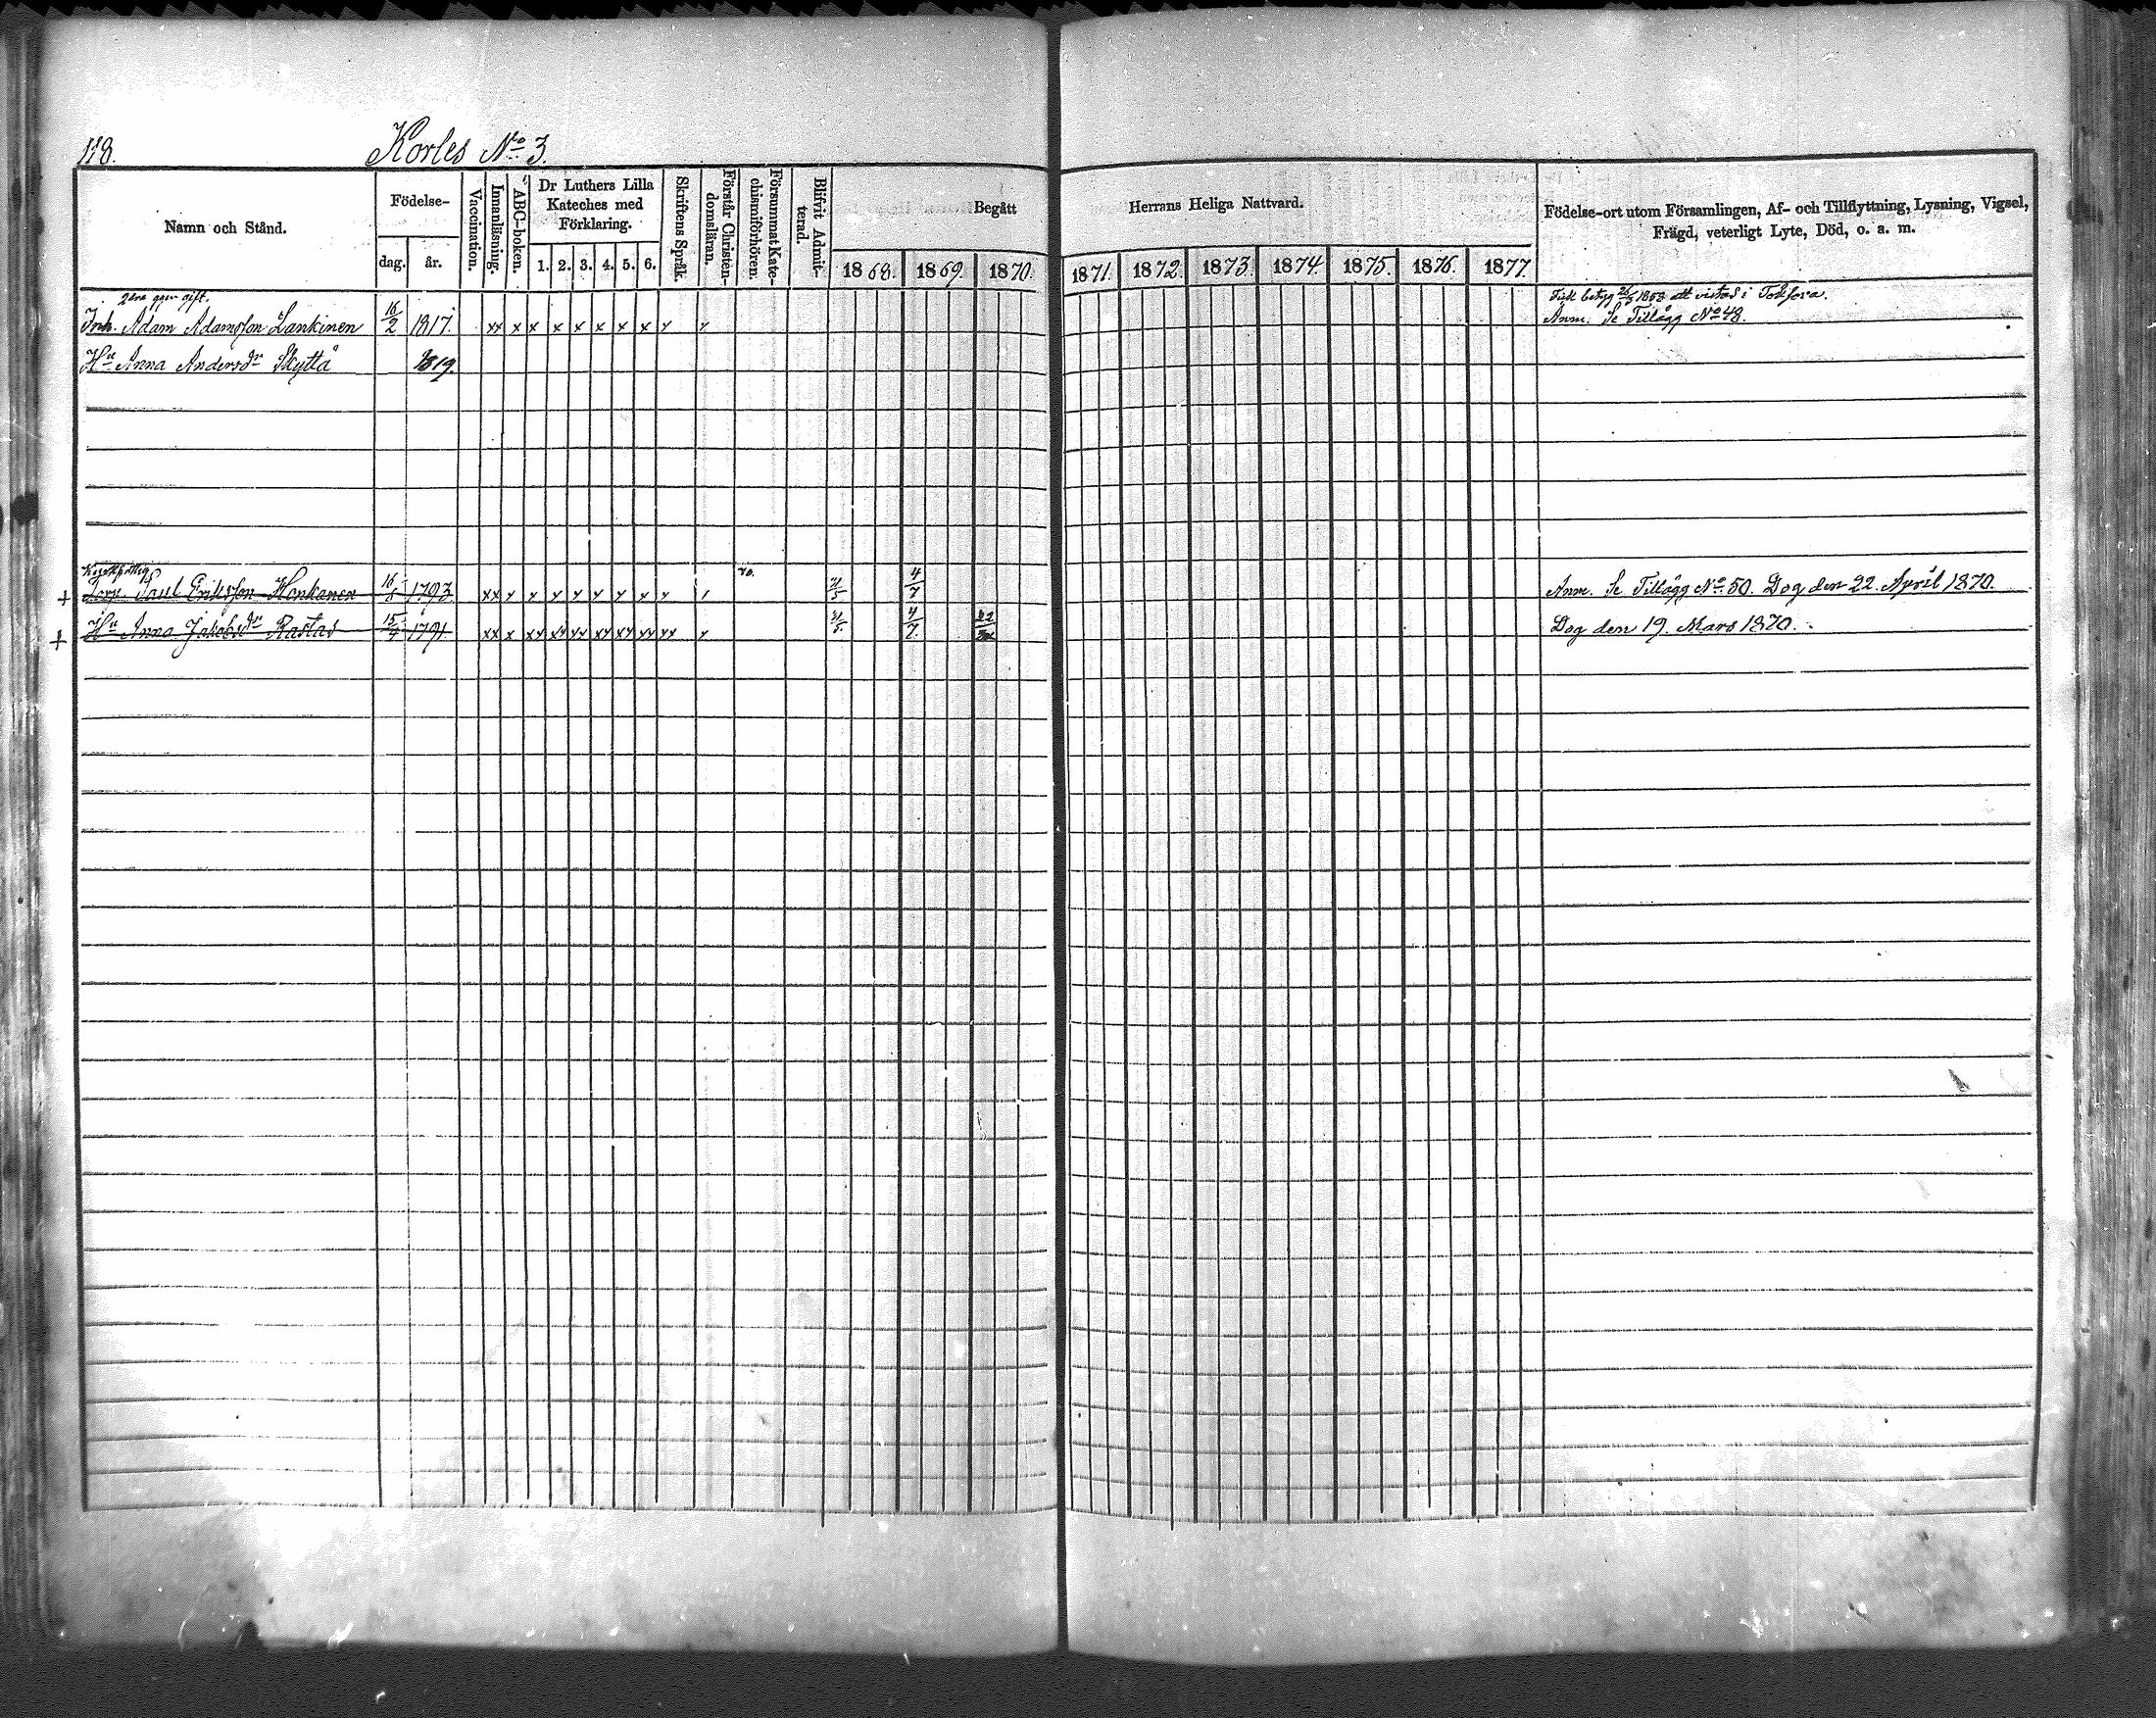 118.
Korles No 3.
Namn och Stånd.
Födelse-
dag.
år.
Vaccination.
Innanläsning.
ABC-boken.
Dr Luthers Lilla
Kateches med
Förklaring.
1. 2. 3. 4. 5. 6.
Skriftens Språk.
Förstår Christen-
domsläran.
Försummat Kate-
chismiförhören.
Blifvit Admit-
terad.
Begått
Herrans Heliga Nattvard.
1868. 1869. 1870. 1871. 1872. 1873. 1874. 1875. 1876. 1877.
Födelse-ort utom Församlingen, Af- och Tillflyttning, Lysning, Vigsel,
Frägd, veterligt Lyte, Död, o. a. m.
2dra ggn gift.
betyg 26/5 1853 att vistas i
Inh. Adam Adamsson Lankinen 16/2 1817. xx x x x x x x x x x Anm. Se Tillägg No 48.
Hu Anna Andersdr Skyttä 1819.
+ Paul Eriksson Honkanen 16/8 1793 xx x x x x x x x x 70. 31/5 4/7 Anm. Se Tillägg No 50. Dog den 22 April 1870.
+ Hu Anna Jakobsdr Rastas 15/4 1791 xx x xx xx xx xx xx xx xx x 31/5. 4/7. Dog den 19. Mars 1870.